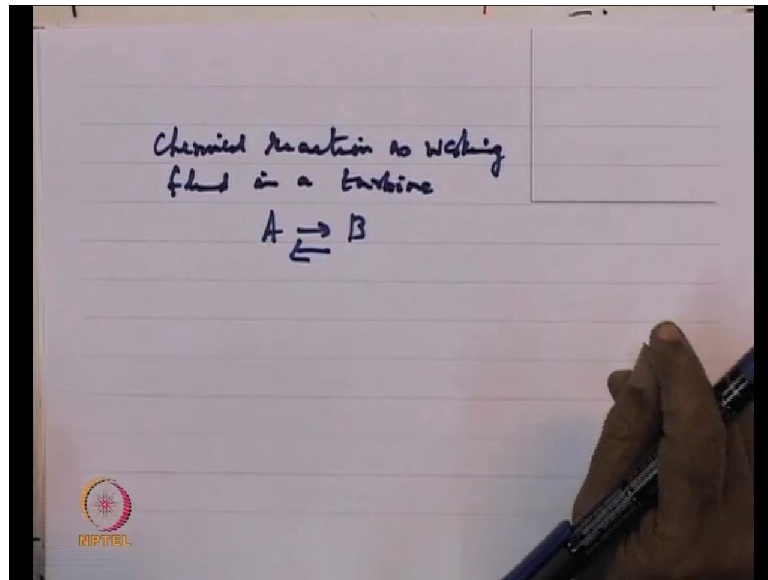 Chemical reaction as working
fluid in a turbine
A ⇌ B
NPTEL